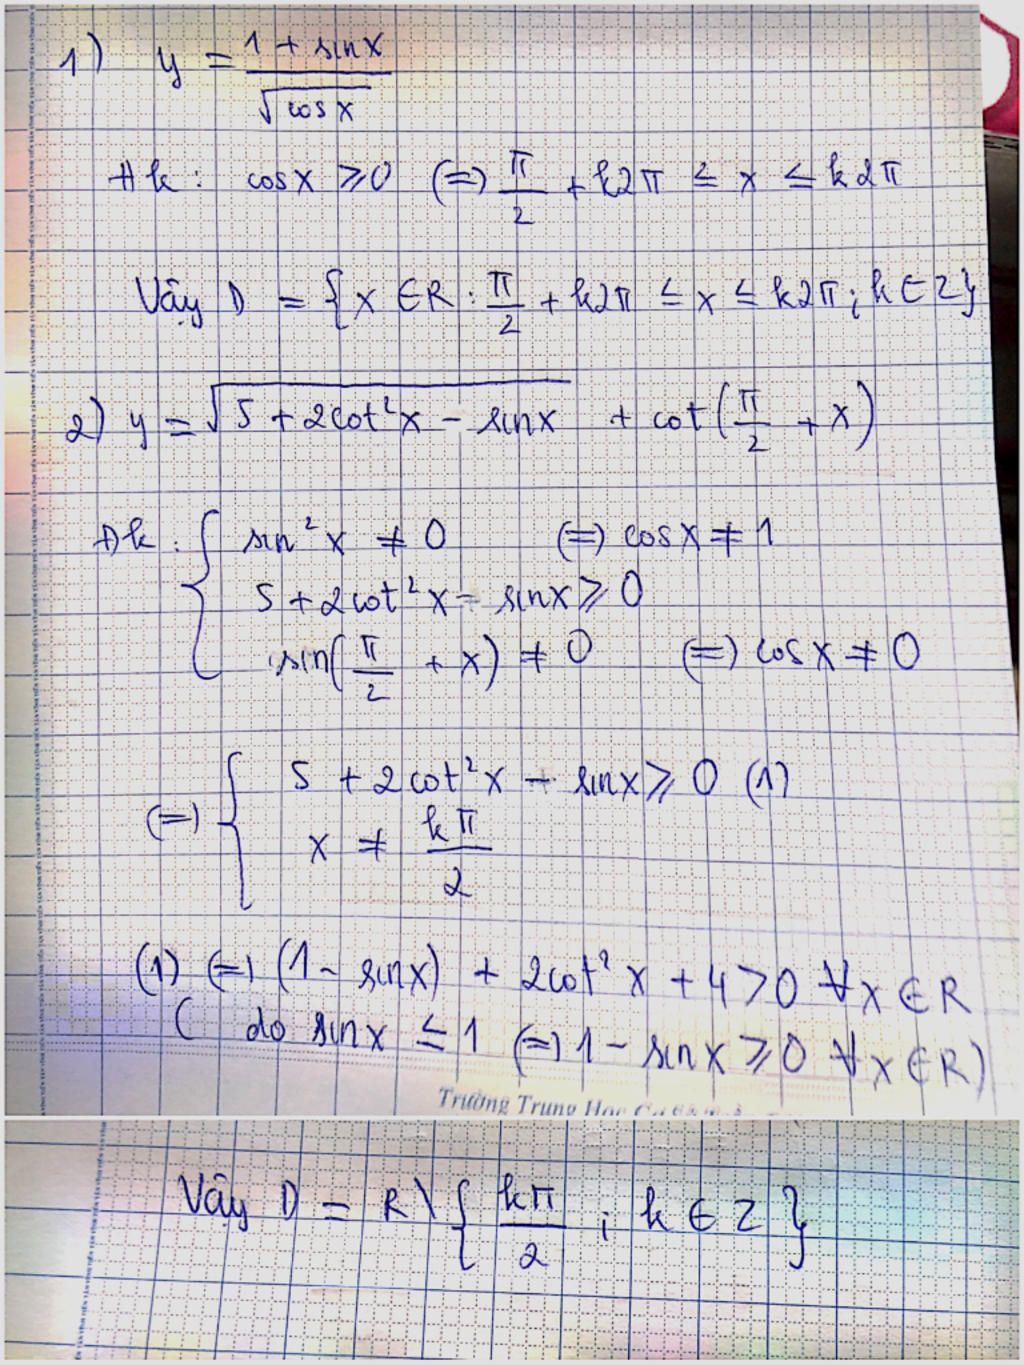 1) y = (1 + sinx)/√cosx
Đk : cosx ⩾ 0 (=) π/2 + k2π ≤ x ≤ k2π
Vậy D = {x ∈ R : π/2 + k2π ≤ x ≤ k2π ; k ∈ Z}
2) y = √(5 + 2cot²x - sinx) + cot(π/2 + x)
Đk : { sin²x ≠ 0 (=) cosx ≠ 1
5 + 2cot²x - sinx ⩾ 0
sin(π/2 + x) ≠ 0 (=) cosx ≠ 0
(=) { 5 + 2cot²x - sinx ⩾ 0 (1)
x ≠ kπ/2
(1) (=) (1 - sinx) + 2cot²x + 4 > 0 ∀x ∈ R
( do sinx ≤ 1 (=) 1 - sinx ⩾ 0 ∀x ∈ R)
Trường Trung Học
Vậy D = R \ { kπ/2 ; k ∈ Z }